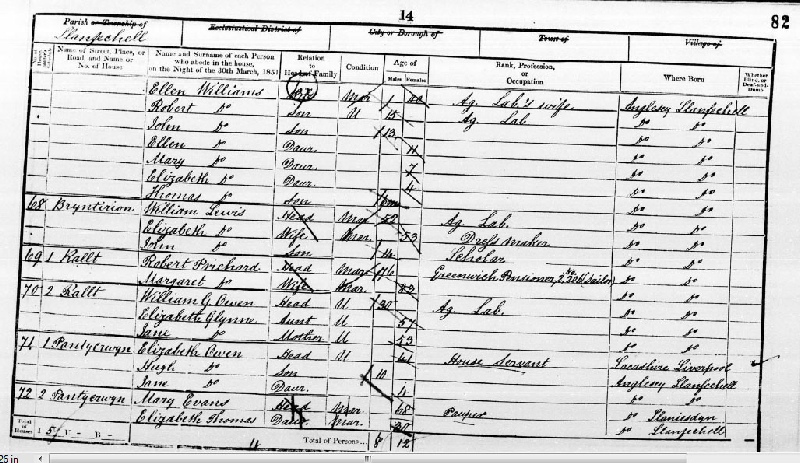 14
82
Parish or Township of
Ecclesiastical District of
City or Borough of
Town of
Village of
Llanfechell
Name of Street, Place, or Road, and Name or No. of House
Name and Surname of each Person who abode in the house, on the Night of the 30th March, 1851
Relation to Head of Family
Condition
Age of
Males Females
Rank, Profession, or Occupation
Where Born
Whether Blind, or Deaf-and-Dumb
Ellen Williams Wife Mar Ag. Lab's wife Anglesey Llanfechell
Robert Do Son U 15 Ag. Lab Do Do
John Do Son 13 Do Do
Ellen Do Daur 11 Do Do
Mary Do Daur 7 Do Do
Elizabeth Do Daur 4 Do Do
Thomas Do Son Do Do
68 Bryntirion William Lewis Head Mar 52 Ag. Lab. Do Do
Elizabeth Do Wife Mar 53 Dress maker Do Do
John Do Son 14 Scholar Do Do
69 1 Kallt Robert Prichard Head Mar 76 Greenwich Pensioner Do Do
Margaret Do Wife Mar 53 Do Do
70 2 Kallt William G. Owen Head U 30 Ag. Lab. Do Do
Elizabeth Glynne Aunt U 57 Do Do
Jane Do Mother U 53 Do Do
71 1 Pantycrwyn Elizabeth Owen Head U 41 House Servant Lancashire Liverpool
Hugh Do Son 10 Anglesey Llanfechell
Jane Do Daur 4 Do Do
72 2 Pantycrwyn Mary Evans Head Mar 68 Pauper Do
Elizabeth Thomas Daur Mar 30 Do Llanfechell
Total of Houses I 5 U – B – Total of Persons 8 12
25 in